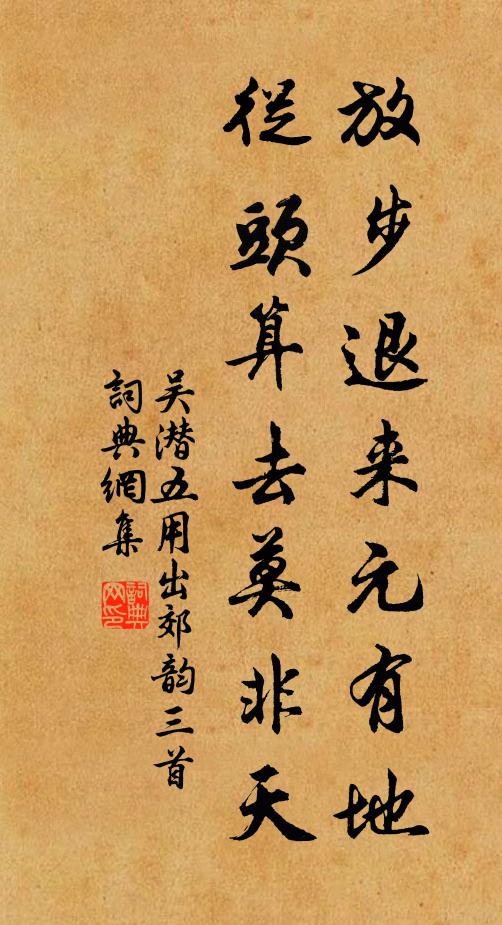 放步退来元有地
從頭算去莫非天
吴潜五用出郊韵三首
詞典網集
詞典網印